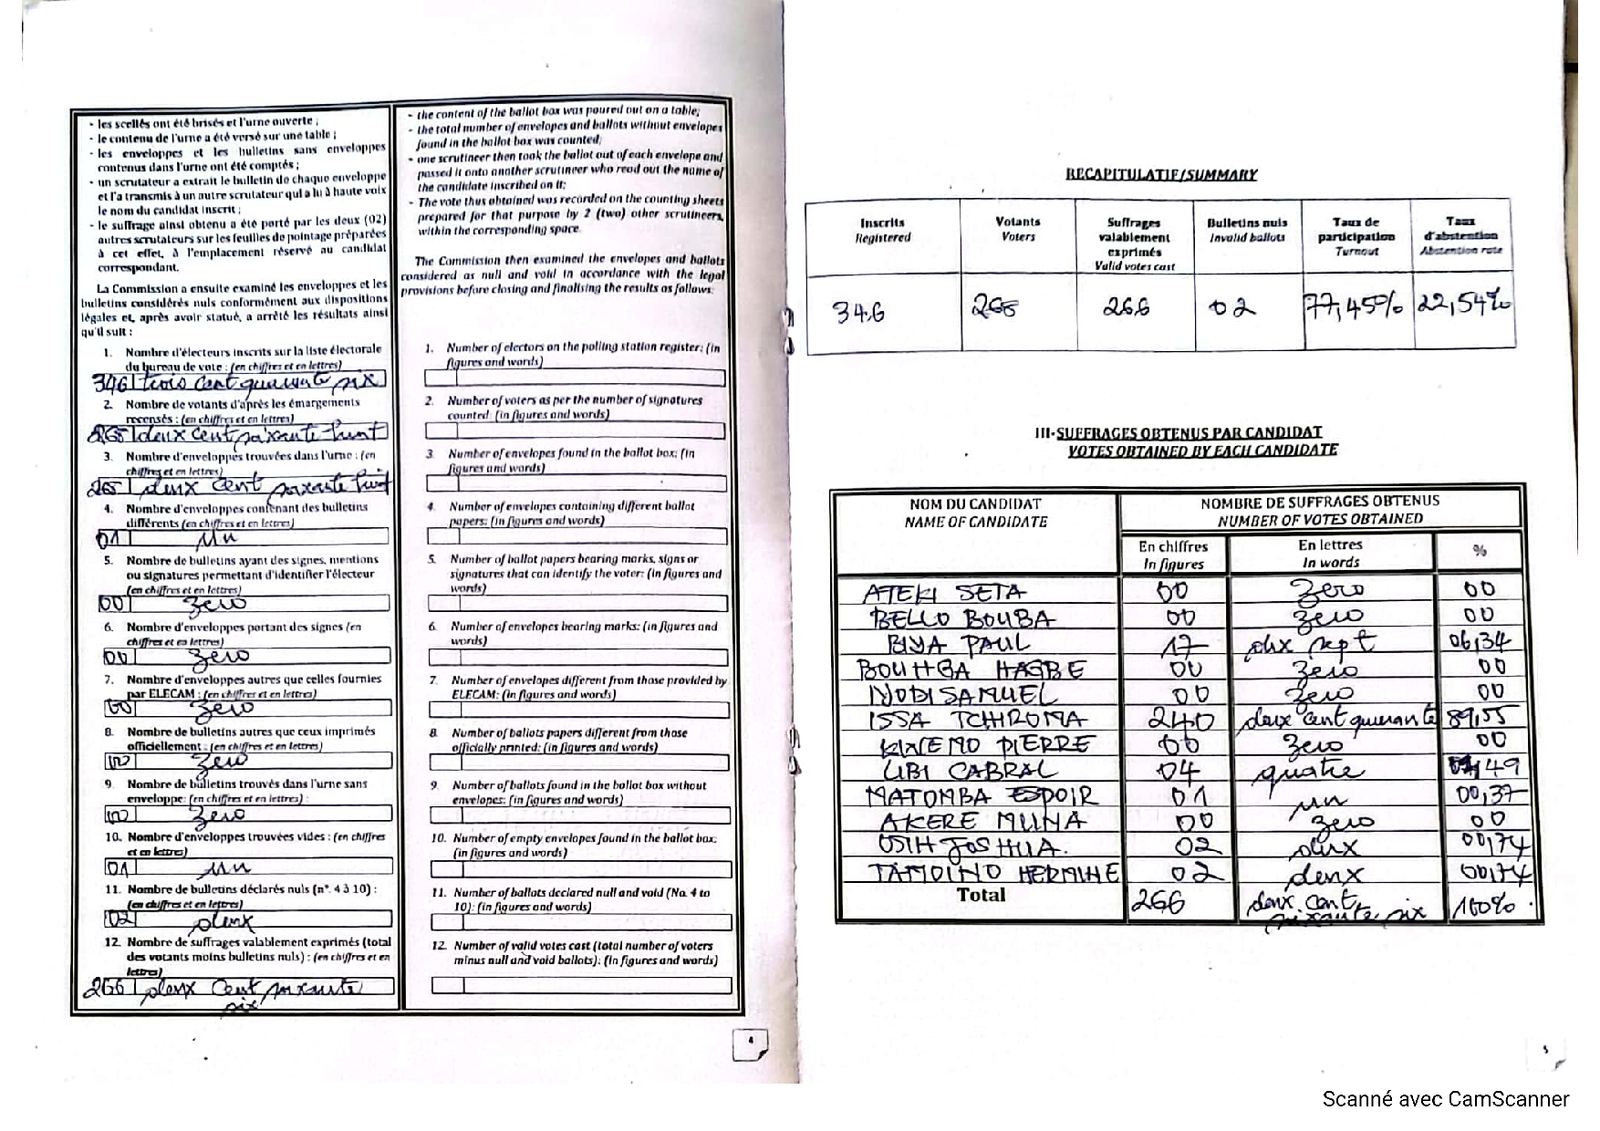 - les scellés ont été brisés et l'urne ouverte ;
- le contenu de l'urne a été versé sur une table ;
- les enveloppes et les bulletins sans enveloppes
contenus dans l'urne ont été comptés ;
- un scrutateur a extrait le bulletin de chaque enveloppe
et l'a transmis à un autre scrutateur qui a lu à haute voix
le nom du candidat inscrit ;
- le suffrage ainsi obtenu a été porté par les deux (02)
autres scrutateurs sur les feuilles de pointage préparées
à cet effet, à l'emplacement réservé au candidat
correspondant.
La Commission a ensuite examiné les enveloppes et les
bulletins considérés nuls conformément aux dispositions
légales et, après avoir statué, a arrêté les résultats ainsi
qu'il suit :
1. Nombre d'électeurs inscrits sur la liste électorale
du bureau de vote : (en chiffres et en lettres)
346 trois cent quarante six
2. Nombre de votants d'après les émargements
recensés : (en chiffres et en lettres)
268 deux cent soixante huit
3. Nombre d'enveloppes trouvées dans l'urne : (en
chiffres et en lettres)
268 deux cent soixante huit
4. Nombre d'enveloppes contenant des bulletins
différents (en chiffres et en lettres)
01 un
5. Nombre de bulletins ayant des signes, mentions
ou signatures permettant d'identifier l'électeur
(en chiffres et en lettres)
00 zero
6. Nombre d'enveloppes portant des signes (en
chiffres et en lettres)
00 zero
7. Nombre d'enveloppes autres que celles fournies
par ELECAM : (en chiffres et en lettres)
00 zero
8. Nombre de bulletins autres que ceux imprimés
officiellement : (en chiffres et en lettres)
00 zero
9. Nombre de bulletins trouvés dans l'urne sans
enveloppe: (en chiffres et en lettres) :
00 zero
10. Nombre d'enveloppes trouvées vides : (en chiffres
et en lettres)
01 un
11. Nombre de bulletins déclarés nuls (n°. 4 à 10) :
(en chiffres et en lettres)
02 deux
12. Nombre de suffrages valablement exprimés (total
des votants moins bulletins nuls) : (en chiffres et en
lettres)
266 deux cent soixante
six
- the content of the ballot box was poured out on a table;
- the total number of envelopes and ballots without envelopes
found in the ballot box was counted;
- one scrutineer then took the ballot out of each envelope and
passed it onto another scrutineer who read out the name of
the candidate inscribed on it;
- The vote thus obtained was recorded on the counting sheets
prepared for that purpose by 2 (two) other scrutineers,
within the corresponding space.
The Commission then examined the envelopes and ballots
considered as null and void in accordance with the legal
provisions before closing and finalising the results as follows:
1. Number of electors on the polling station register: (in
figures and words)
2. Number of voters as per the number of signatures
counted: (in figures and words)
3. Number of envelopes found in the ballot box: (in
figures and words)
4. Number of envelopes containing different ballot
papers: (in figures and words)
5. Number of ballot papers bearing marks, signs or
signatures that can identify the voter: (in figures and
words)
6. Number of envelopes bearing marks: (in figures and
words)
7. Number of envelopes different from those provided by
ELECAM: (in figures and words)
8. Number of ballots papers different from those
officially printed: (in figures and words)
9. Number of ballots found in the ballot box without
envelopes: (in figures and words)
10. Number of empty envelopes found in the ballot box:
(in figures and words)
11. Number of ballots declared null and void (No. 4 to
10): (in figures and words)
12. Number of valid votes cast (total number of voters
minus null and void ballots): (in figures and words)
4
RECAPITULATIF/SUMMARY
Inscrits Registered Votants Voters Suffrages valablement exprimés Valid votes cast Bulletins nuls Invalid ballots Taux de participation Turnout Taux d'abstention Abstention rate
346 268 266 02 77,45% 22,54%
III-SUFFRAGES OBTENUS PAR CANDIDAT
VOTES OBTAINED BY EACH CANDIDATE
NOM DU CANDIDAT NOMBRE DE SUFFRAGES OBTENUS
NAME OF CANDIDATE NUMBER OF VOTES OBTAINED
En chiffres En lettres %
In figures In words
ATEKI SETA 00 zero 00
BELLO BOUBA 00 zero 00
BIYA PAUL 17 dix sept 06,34
BOUHGA HAGBE 00 zero 00
IYODI SAMUEL 00 zero 00
ISSA TCHIROMA 240 deux cent quarante 89,55
KWEMO PIERRE 00 zero 00
LIBI CABRAL 04 quatre 49
MATOMBA ESPOIR 01 un 00,37
AKERE MUNA 00 zero 00
OSIH JOSHUA. 02 deux 00,74
TAMOINO HERMINE 02 deux 00,74
Total 266 deux cent soixante six 100%
5
Scanné avec CamScanner